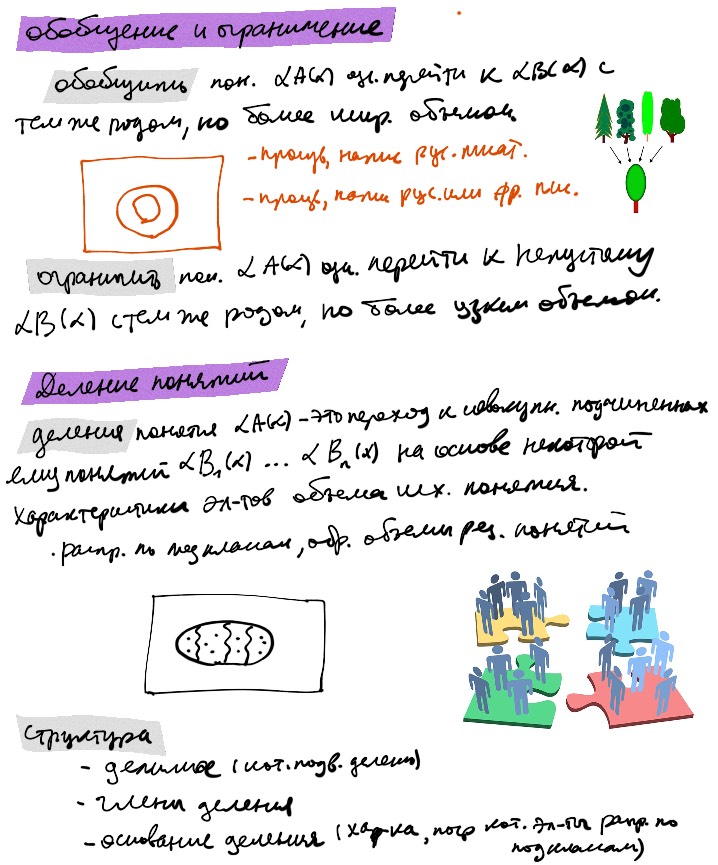 обобщение и ограничение
обобщить пон. αA(α) озн. перейти к αB(α) с
тем же родом, но более шир. объёмом
- произв, напис рус. писат.
- произв, напис рус. или фр. пис.
ограничить пон. αA(α) озн. перейти к непустому
αB(α) с тем же родом, но более узким объемом.
Деление понятий
деления понятия αA(α) - это переход к совокупн. подчиненных
ему понятий αB₁(α) ... αBₙ(α) на основе некоторой
характеристики эл-тов объема исх. понятия.
· распр. по подклассам, обр. объемы рез. понятий
Структура
- делимое (кот. подв. делению)
- члены деления
- основание деления (хар-ка, поср кот. эл-ты распр. по
подклассам)